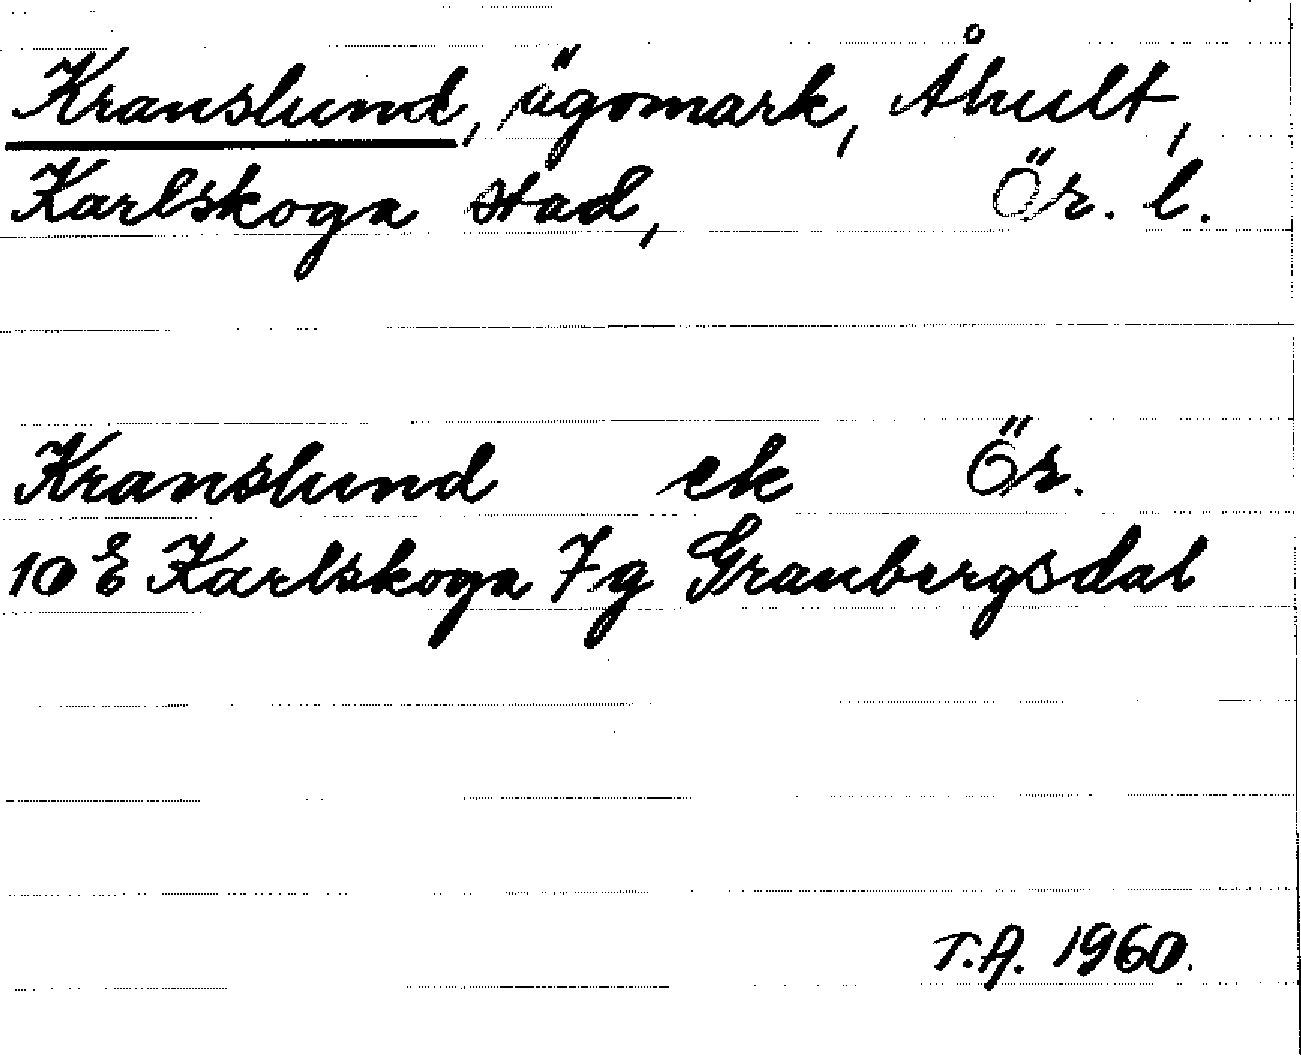 Kranslund, ägomark, Åhult,
Karlskoga stad, Ör. l.
Kranslund ek Ör.
10 E Karlskoga 7g Granbergsdal
T.A. 1960.